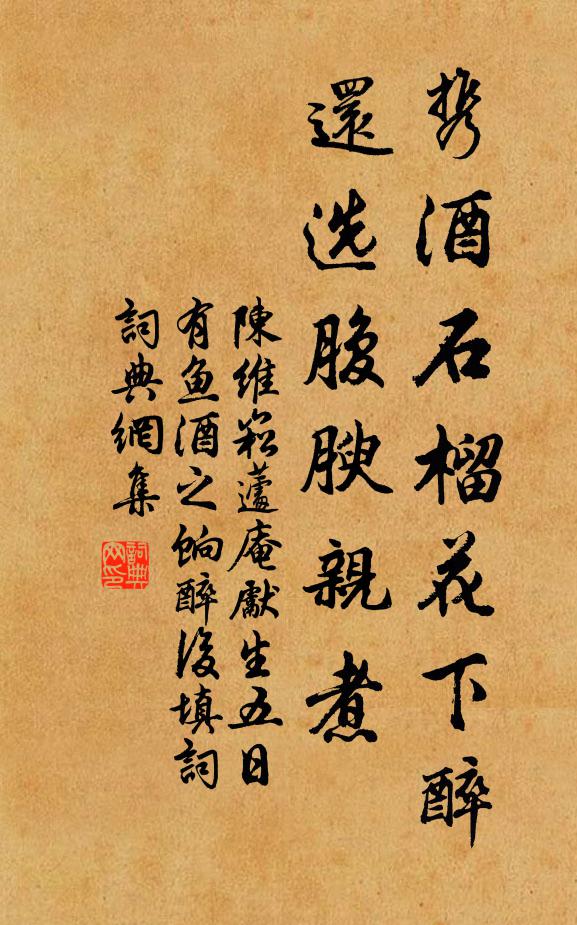 携酒石榴花下醉
還选腹腴親煮
陳維崧蘆庵獻生五日
有鱼酒之餉醉後填詞
詞典網集
詞典網印